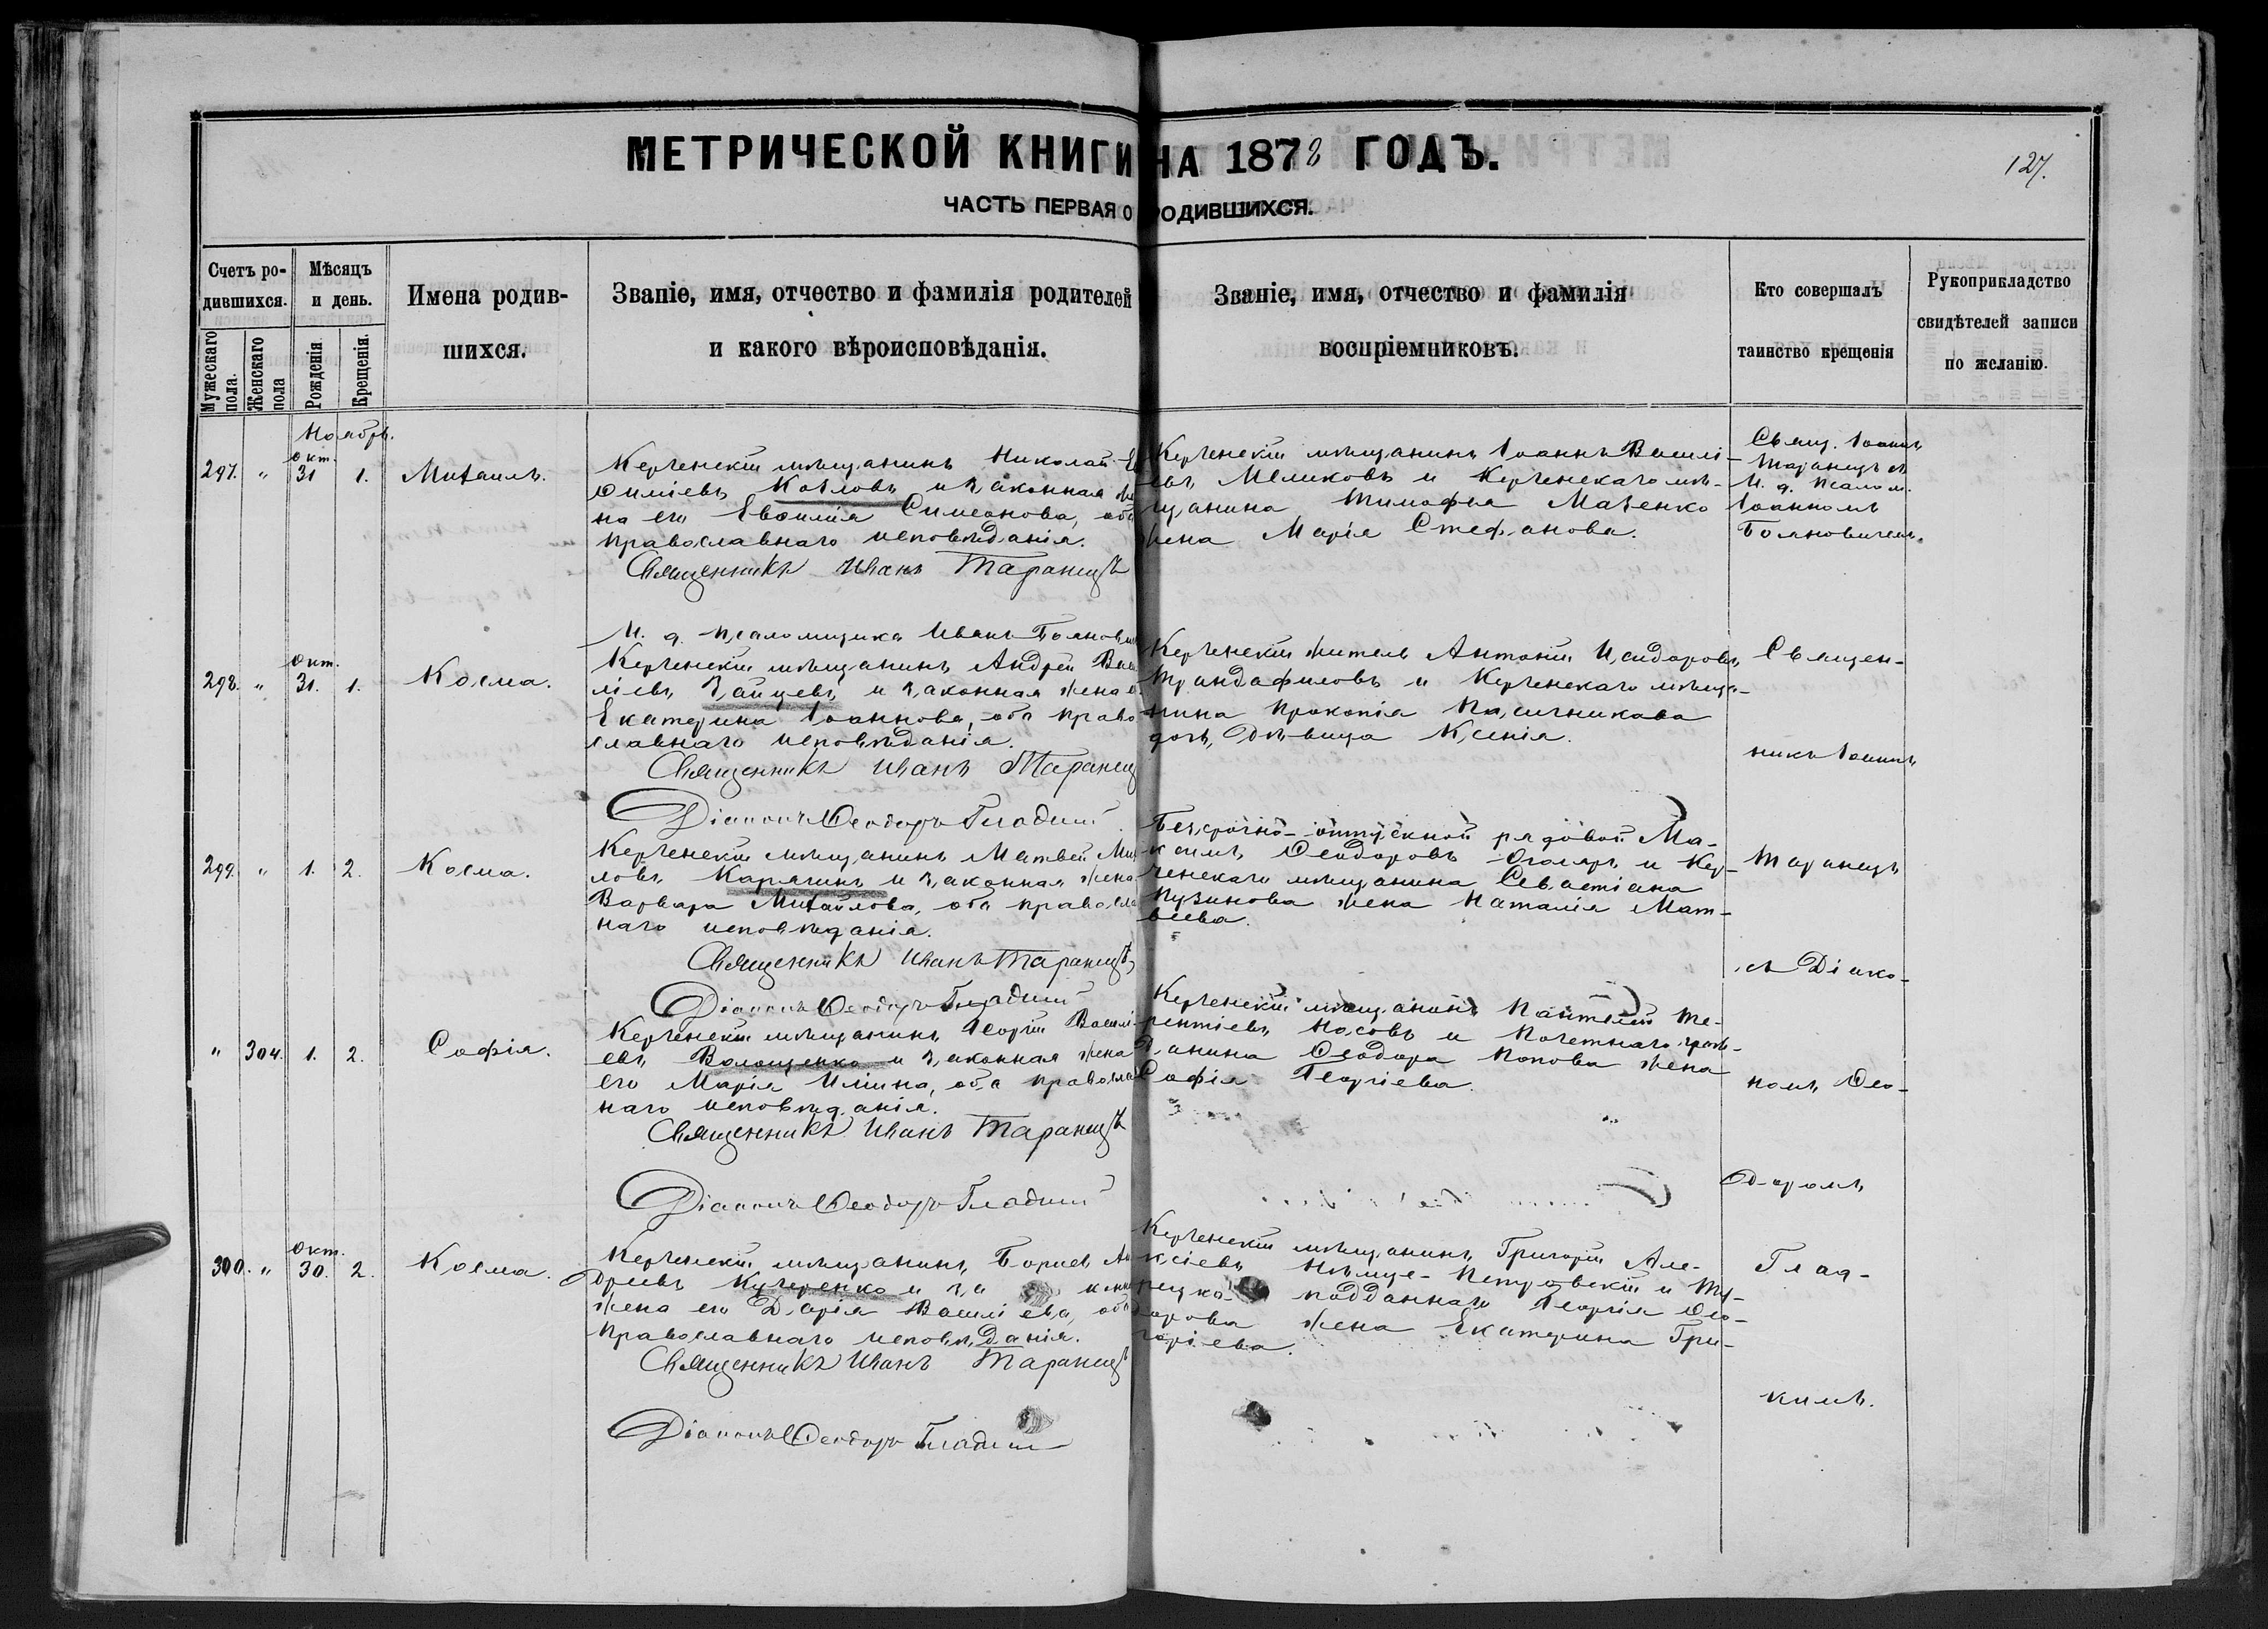 МЕТРИЧЕСКОЙ КНИГИ НА 1872 ГОДЪ.
127.
ЧАСТЬ ПЕРВАЯ О РОДИВШИХСЯ.
Счетъ ро-
дившихся.
Мужескаго пола.
Женскаго пола
Мѣсяцъ
и день.
Рожденія.
Крещенія.
Имена родив-
шихся.
Званіе, имя, отчество и фамилія родителей
и какого вѣроисповѣданія.
Званіе, имя, отчество и фамилія
воспріемниковъ.
Кто совершалъ
таинство крещенія
Рукоприкладство
свидѣтелей записи
по желанію.
Ноябрь.
297. " Окт. 31 1. Михаилъ.
Керченскій мѣщанинъ Николай
Козловъ и законная
на его Симеонова,
православнаго исповѣданія.
Священникъ Иванъ Таранецъ
И. д. псаломщика Иванъ
Керченскій мѣщанинъ Іоаннъ Василі-
евъ Меликовъ и Керченскаго мѣ-
щанина Тимофея Мазенко
жена Марія Стефанова.
Свящ. Іоаннъ
Таранецъ съ
И. д. псалом.
Іоанномъ
298. " Окт. 31. 1. Косма.
Керченскій мѣщанинъ Андрей Васи
ліевъ Зайцевъ и законная жена
Екатерина Іоаннова, оба право
славнаго исповѣданія.
Священникъ Иванъ Таранецъ
Діаконъ Ѳеодоръ Гладкий
Керченскій житель Антоній Исидоровъ
Трандафиловъ и Керченскаго мѣща-
нина Прокопія
дочь, дѣвица Ксенія.
Священ-
никъ Іоаннъ
299. " 1. 2. Косма.
Керченскій мѣщанинъ Матвей
ловъ Карягинъ и законная жена
Варвара Михайлова, оба правосла
наго исповѣданія.
Священникъ Иванъ Таранецъ
Діаконъ Ѳеодоръ Гладкий
Безсрочно-отпускной рядовой Ма-
ксимъ Ѳеодоровъ и Кер-
ченскаго мѣщанина Севастіана
Пузинова жена Наталія Мат-
веева.
Таранецъ
съ Діако-
" 304. 1. 2. Софія.
Керченскій мѣщанинъ Георгій Василі
евъ Волощенко и законная жена
его Марія Ильина, оба правосла
наго исповѣданія.
Священникъ Иванъ Таранецъ
Діаконъ Ѳеодоръ Гладкий
Керченскій мѣщанинъ Пантелей Те-
рентіевъ Носовъ и Почетнаго граж-
данина Ѳеодора Попова жена
Софія Георгіева.
номъ Ѳео-
доромъ
300. " Окт. 30. 2. Косма.
Керченскій мѣщанинъ Борисъ Ан
дреевъ Кучеренко и за конная
жена его Дарія Василіева, оба
православнаго исповѣданія.
Священникъ Иванъ Таранецъ
Діаконъ Ѳеодоръ Гладкий
Керченскій мѣщанинъ Григорій Але-
ксіевъ Петровскій и Ту-
рецко- подданнаго Георгія Ѳео-
дорова жена Екатерина Гри-
горіева.
Глад-
кимъ.